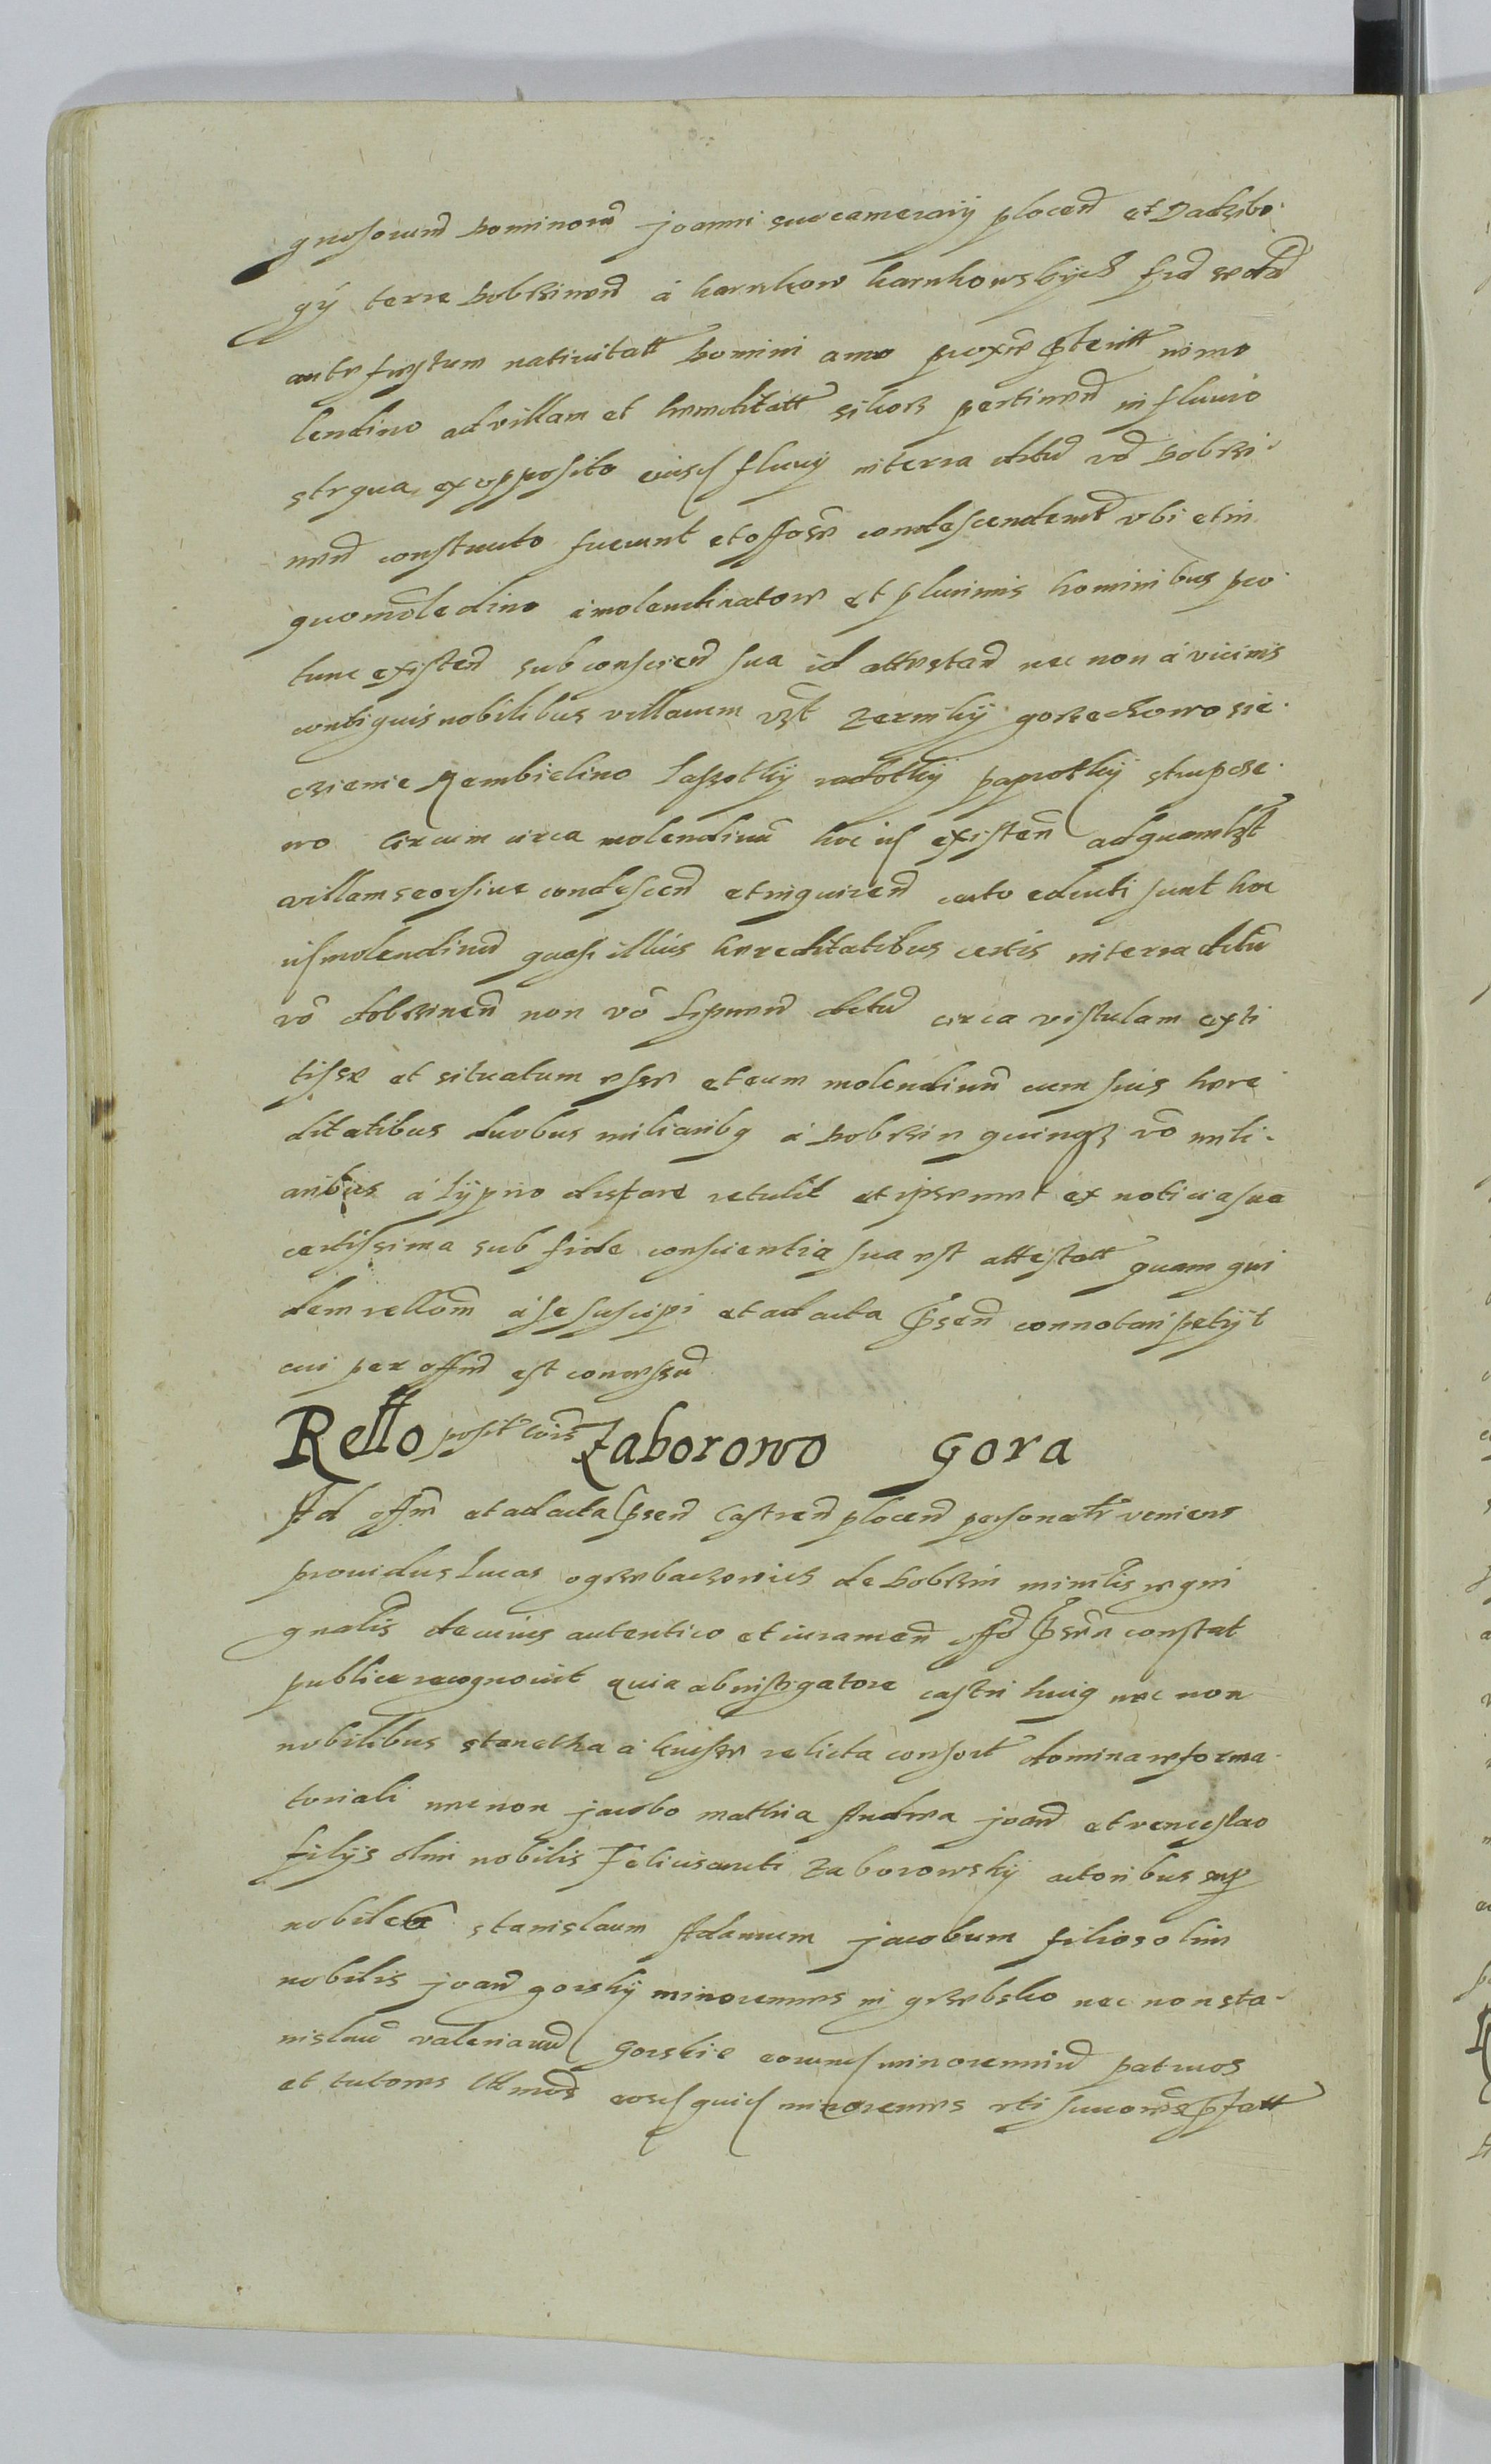 gnosorum Dominorum Joanni succamerarij plocen et Dadzibo
gij terre Dobrinen á karnkow karnkowskych fer secunda
ante festum nativitatt Domini anno proxime preteritt in mo
lendino ad villam et hereditatt sikorz pertinen in fluvio
strgua ex opposito eiusd fluvij in terra dicta Dobrzi
nen constructo fuerunt et offose condescenderunt ubi et in
quo moledino á molendinatore et plurimis hominibus pro
tunc existen sub conscien sua id attestan nec non á vicinis
contiguis nobilibus villarum vzt zernikij gorzechowo sie
czienie Rembielino Lassotkij radotkij paprotkij strupcze
wo circum circa molendinum hoc id existen ad quamlibet
villam seorsive condescen et inquiren certo educti sunt hoc
id molendinum quasi illius hereditatibus certis in terra dicta
vo dobrzinen non vo Lipnen dicta circa vistulam exti
tisse et situatum esse et eum molendinum cum suis here
ditatibus duobus miliaribus á Dobrzin quinque vo mili
aribus á Lijpno distare retulit et ipsemet ex noticia sua
certissima sub fide conscientia sua est attestatt quam qui
dem rellom á se suscipi et ad acta presen connotari petijt
cui per offm est concessum
Rello posit cois Zaborowo Gora
Ad offm et ad acta presen Castren plocen personatr veniens
providus Lucas ogrzebaczowicz de Dobrzin minitlis regni
gnalis de cuius autentico et iuramen offo presen constat
publice recognovit quia ab instigatore castri huius nec non
nobilibus stanetha á kuiser relicta consort domina reforma
toriali nec non jacobo mathia Andrea joan et venceslao
filijs olim nobilis Felicis aucti Zaborowskij actoribus sup
nobilem stanislaum Adamum jacobum filios olim
nobilis joan gorskij minorennes in grzebsko nec non sta
nislaum valerianum Gorskie eorund minorennium patruos
et tutores eosd quid minorennes uti succores prefatt